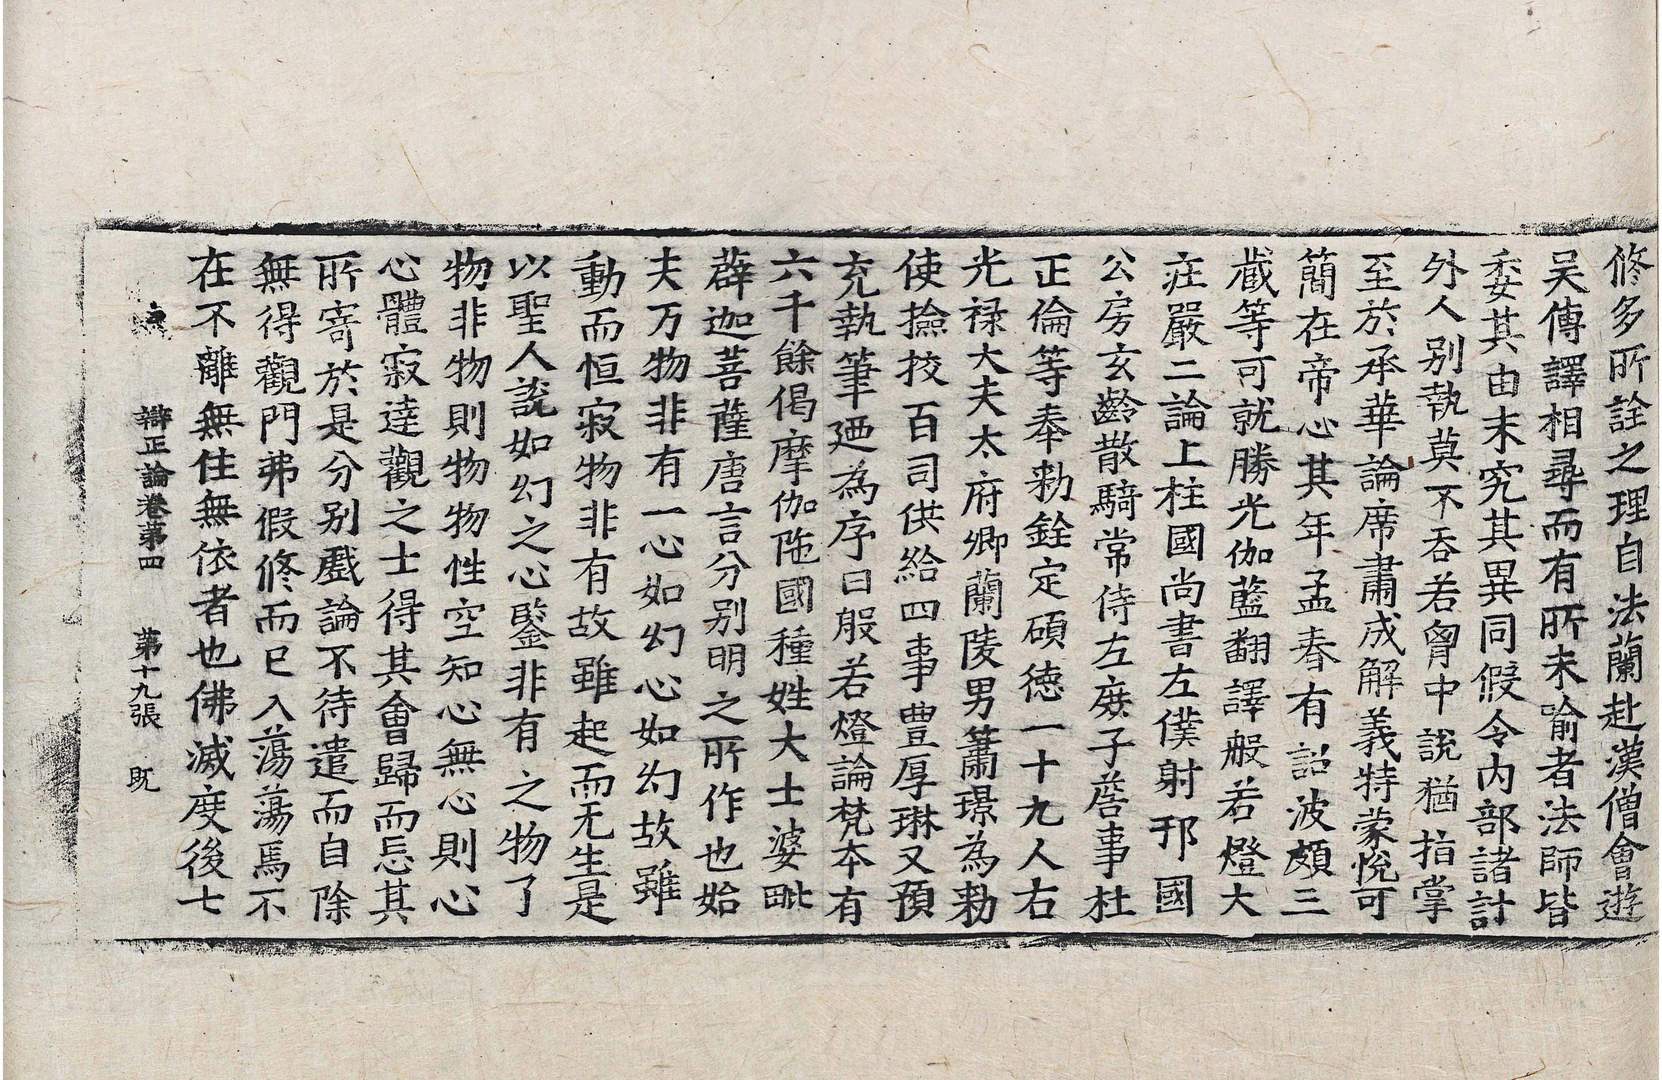 修多所詮之理自法蘭赴漢僧會遊
吴傳譯相尋而有所未喻者法師皆
委其由末究其異同假令内部諸計
外人别執莫不吞若胷中說猶指掌
至於承華論席肅成解義特蒙悅可
簡在帝心其年孟春有詔波頗三
藏等可就勝光伽藍翻譯般若燈大
庄嚴二論上柱國尚書左僕射邘國
公房玄齡散騎常侍左庻子詹事杜
正倫等奉勑銓定碩徳一十九人右
光禄大夫太府卿蘭陵男蕭璟為勑
使撿挍百司供給四事豊厚琳又預
充執筆廼為序曰般若燈論梵夲有
六千餘偈摩伽陁國種姓大士婆毗
薜迦菩薩唐言分别明之所作也始
夫万物非有一心如幻心如幻故雖
動而恒寂物非有故雖起而无生是
以聖人說如幻之心鑒非有之物了
物非物則物物性空知心無心則心
心體寂達觀之士得其會歸而忘其
所寄於是分别戲論不待遣而自除
無得觀門弗假修而已入蕩蕩焉不
在不離無住無依者也佛滅度後七
辯正論卷第四 第十九張 旣